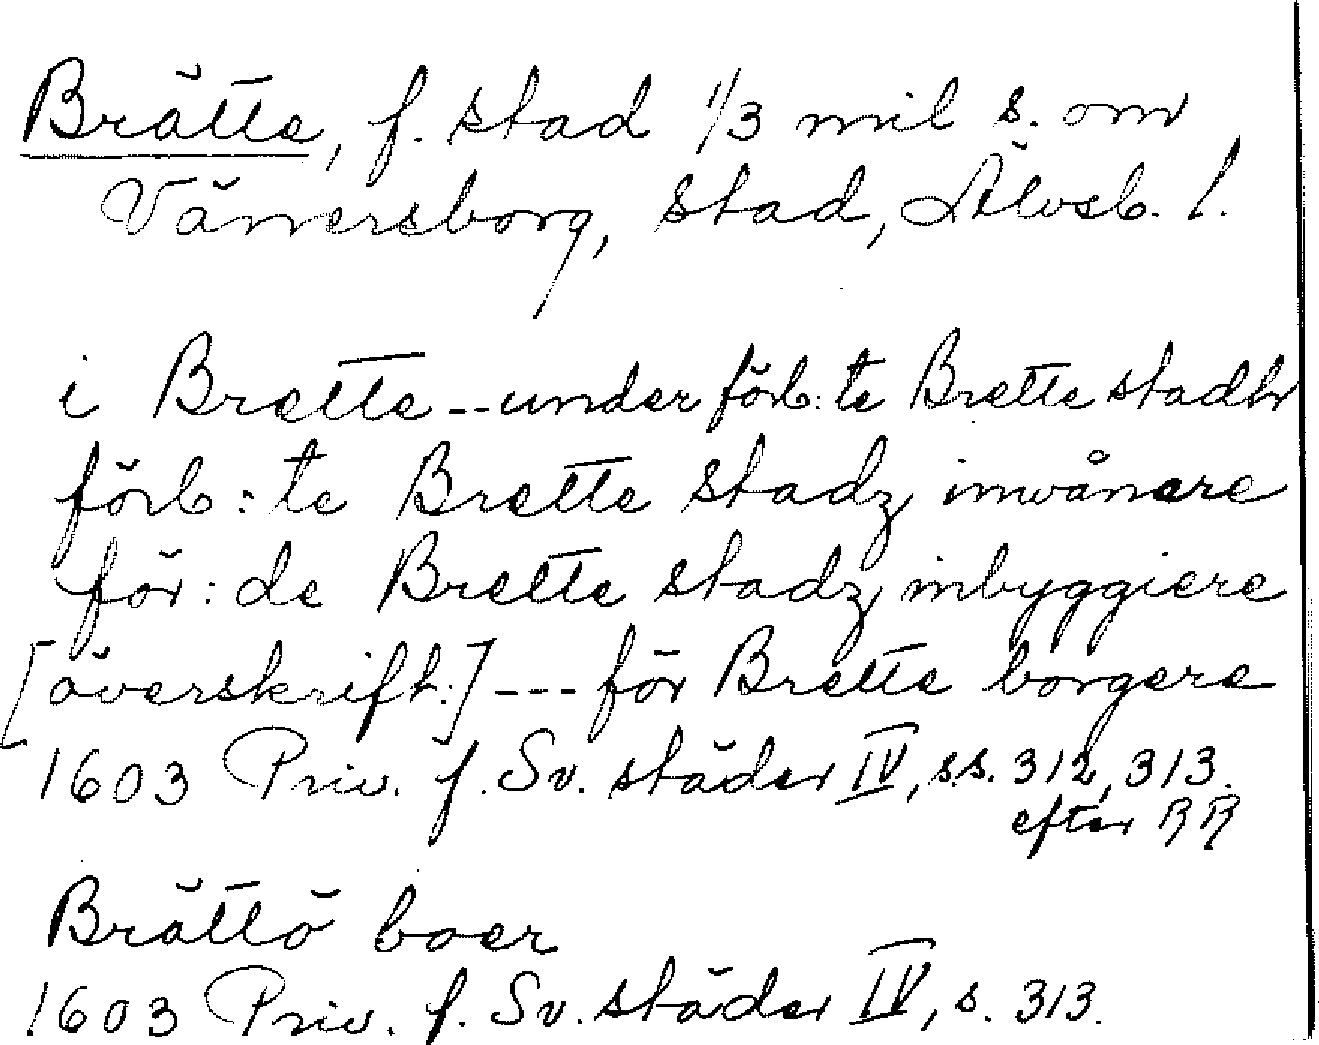 Brätte, f. stad 1/3 mil s. om
Vänersborg, stad, Älvsb. l.
i Brette -- under förb:te Brette stadh
förb:te Brette stadz inwånere
för:de Brette stadz inbyggiere
[överskrift:] --- för Brette borgere
1603 Priv. f. Sv. städer IV, ss. 312, 313.
efter RR
Brättö boer
1603 Priv. f. Sv. städer IV, s. 313.